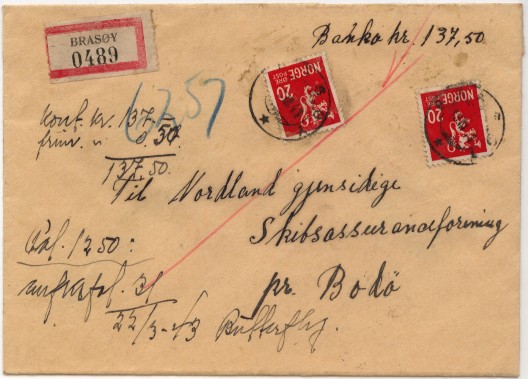 BRASØY
0489
Banko kr. 137,50
NORGE
ØRE POST
20
NORGE
ØRE POST
20
Kont. kr. 137.
frim. " 0.50
137,50.
Til Nordland gjensidige
Skibsassuranceforening
pr. Bodö
1250:
31
22/3-43